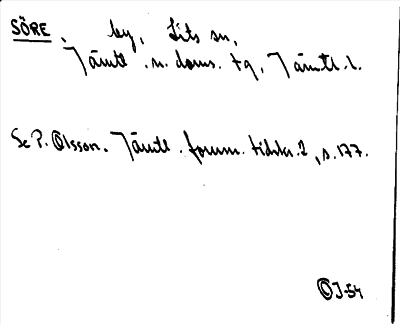 SÖRE. by, Lits sn,
Jämtl. n. doms. tg, Jämtl. l.
Se P. Olsson. Jämtl. fornm. tidskr. 2, s. 177.
OJ-54